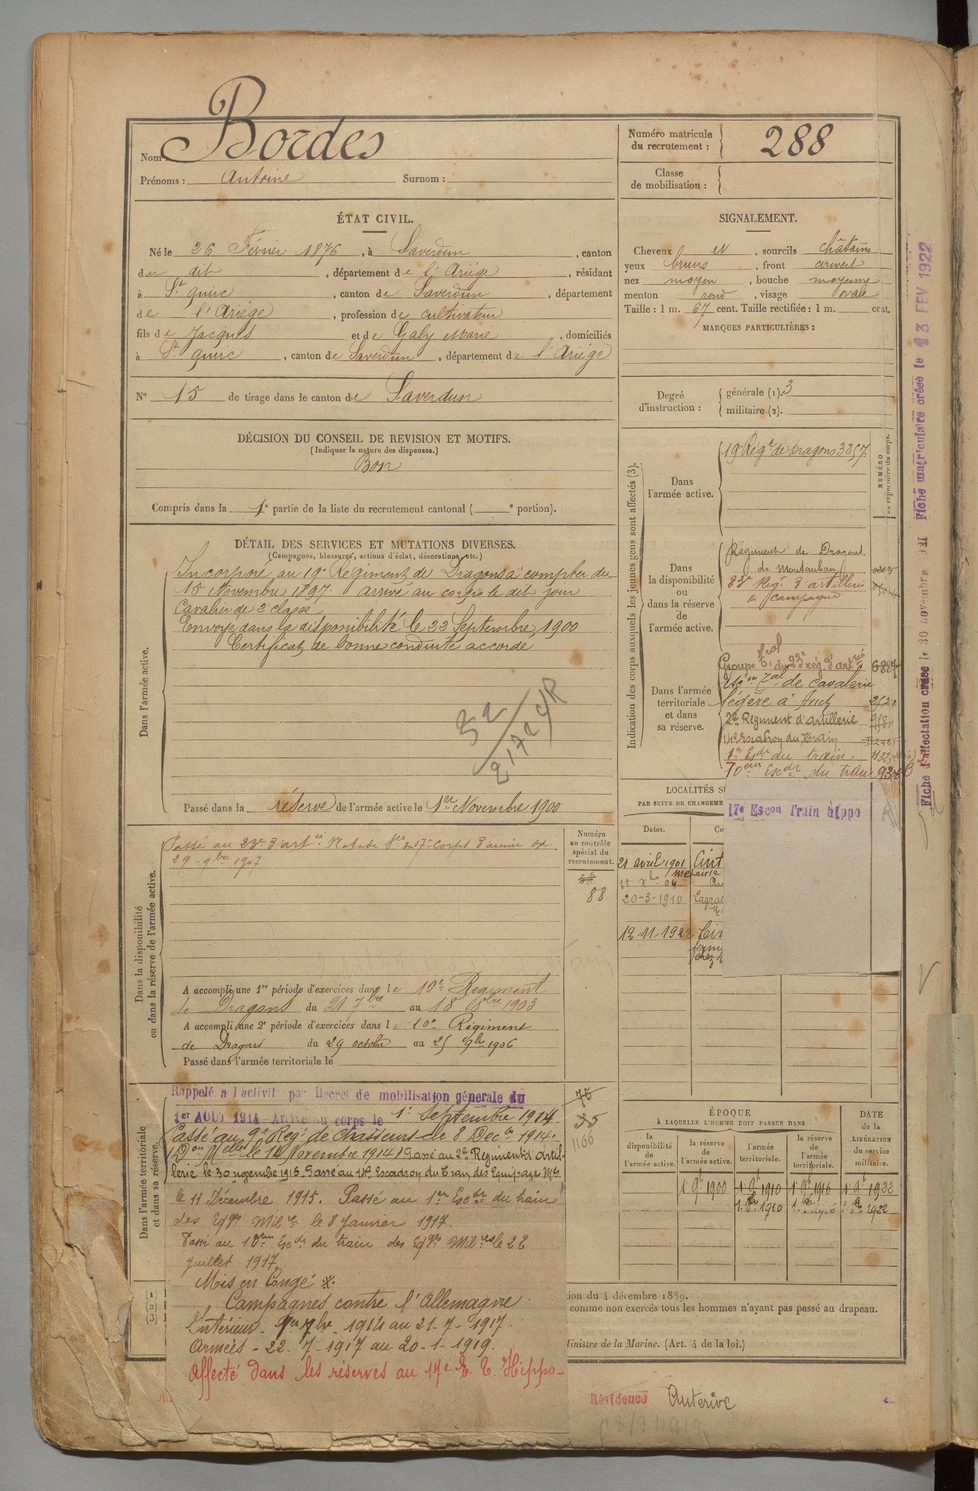 Nom Bordes
Prénoms : Antoine Surnom :
Numéro matricule
du recrutement : 288
Classe
de mobilisation :
ÉTAT CIVIL.
Né le 26 Février 1876, à Saverdun, canton
du dit, département de l'Ariège, résidant
à St quirc, canton de Saverdun, département
de l'Ariège, profession de cultivateur
fils de Jacques et de Galy Marie, domiciliés
à St quirc, canton de Saverdun, département de l'Ariège
N° 15 de tirage dans le canton de Saverdun
SIGNALEMENT.
Cheveux et, sourcils châtains
yeux bruns, front couvert
nez moyen, bouche moyenne
menton rond, visage ovale
Taille : 1 m. 67 cent. Taille rectifiée : 1 m. cent.
MARQUES PARTICULIÈRES :
Degré
d'instruction :
générale (1). 3
militaire (2).
DÉCISION DU CONSEIL DE REVISION ET MOTIFS.
(Indiquer la nature des dispenses.)
Bon
Compris dans la 1e partie de la liste du recrutement cantonal ( e portion).
DÉTAIL DES SERVICES ET MUTATIONS DIVERSES.
(Campagnes, blessures, actions d'éclat, décorations, etc.)
Dans l'armée active.
Incorporé au 19e Régiment de Dragons à compter du
15 Novembre 1897 arrivé au corps le dit jour
Cavalier de 2e classe
Envoyé dans la disponibilité le 22 Septembre 1900
Certificat de bonne conduite accordé
Passé dans la réserve de l'armée active le 1er Novembre 1900
Indication des corps auxquels les jeunes gens sont affectés (3).
NUMÉRO
au répertoire du corps.
Dans
l'armée active.
19e Régt de Dragons 3357
Dans
la disponibilité
ou
dans la réserve
de
l'armée active.
Régiment de Dragons
de Montauban
23e Regt d'artillerie
en campagne
Dans l'armée
territoriale
et dans
sa réserve.
légère à
2e Régiment d'artillerie
14e escadron du train
1er Escdr du train
10eme Escdr du train
17e Escon Train hippo
LOCALITÉS
PAR SUITE DE CHANGEME
Dates.
21 avril 1901
20-3-1910
Dans la disponibilité
ou dans la réserve de l'armée active.
Numéro
au contrôle
spécial du
recrutement.
88
A accompli une 1re période d'exercices dans le 10e Régiment
de Dragons du 21 7bre au 18 8bre 1903
A accompli une 2e période d'exercices dans l e 10e Régiment
de Dragons du 29 octobre au 25 9bre 1906
Passé dans l'armée territoriale le
Dans l'armée territoriale
et dans sa réserve.
Rappelé à l'activité par Décret de mobilisation générale du
1er AOUT 1914 Arrivé au corps le 1er Septembre 1914
Passé au 9e Régt de Chasseurs le 8 Decbre 1914.
Passé au 2e Régiment d'Artil
lerie le 30 novembre 1915. Passé au 14e Escadron du Train des Equipages Mres
le 11 Décembre 1915. Passé au 1er Escdr du train
des Eqges Milres le 8 Janvier 1917.
Passé au 10eme Escdr du train des Eqges Milres le 22
juillet 1917.
Mis en Congé
Campagnes contre l'Allemagne
Intérieur - 1914 au 21-7-1917.
Armées - 22-7-1917 au 20-1-1919.
Affecté dans les réserves au 17e E. T. Hippo-
ÉPOQUE
À LAQUELLE L'HOMME DOIT PASSER DANS
la
disponibilité
de
l'armée active.
la réserve
de
l'armée active.
l'armée
territoriale.
la réserve
de
l'armée
territoriale.
DATE
de la
LIBÉRATION
du service
militaire.
1 9e 1900 1 9e 1910 1 9e 1916 1 9e 1922
ion du 4 décembre 1889.
comme non exercés tous les hommes n'ayant pas passé au drapeau.
Ministre de la Marine. (Art. 4 de la loi.)
Résidence Auterive
Fiche d'affectation créée le 30 novembre
Fiche matriculaire créée le 13 FEV 1922